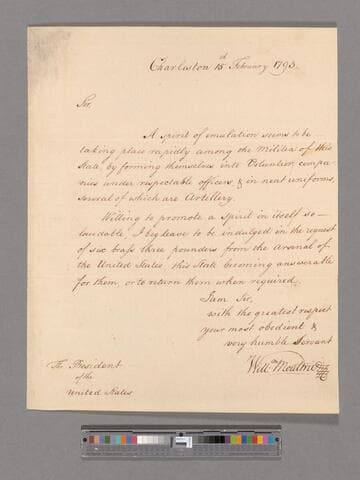 Charleston 15d February 1793.
Sir,
A spirit of emulation seems to be
taking place rapidly among the Militia of this
State, by forming themselves into Volunteer compa-
nies under respectable officers, & in neat uniforms,
several of which are Artillery.
Willing to promote a spirit in itself so
laudable, I beg leave to be indulged in the request
of six brass three pounders from the Arsenal of
the United States this State becoming answerable
for them, or to return them when required.
I am Sir,
with the greatest respect
your most obedient &
very humble Servant
Willm Moultrie
The President
of the
United States